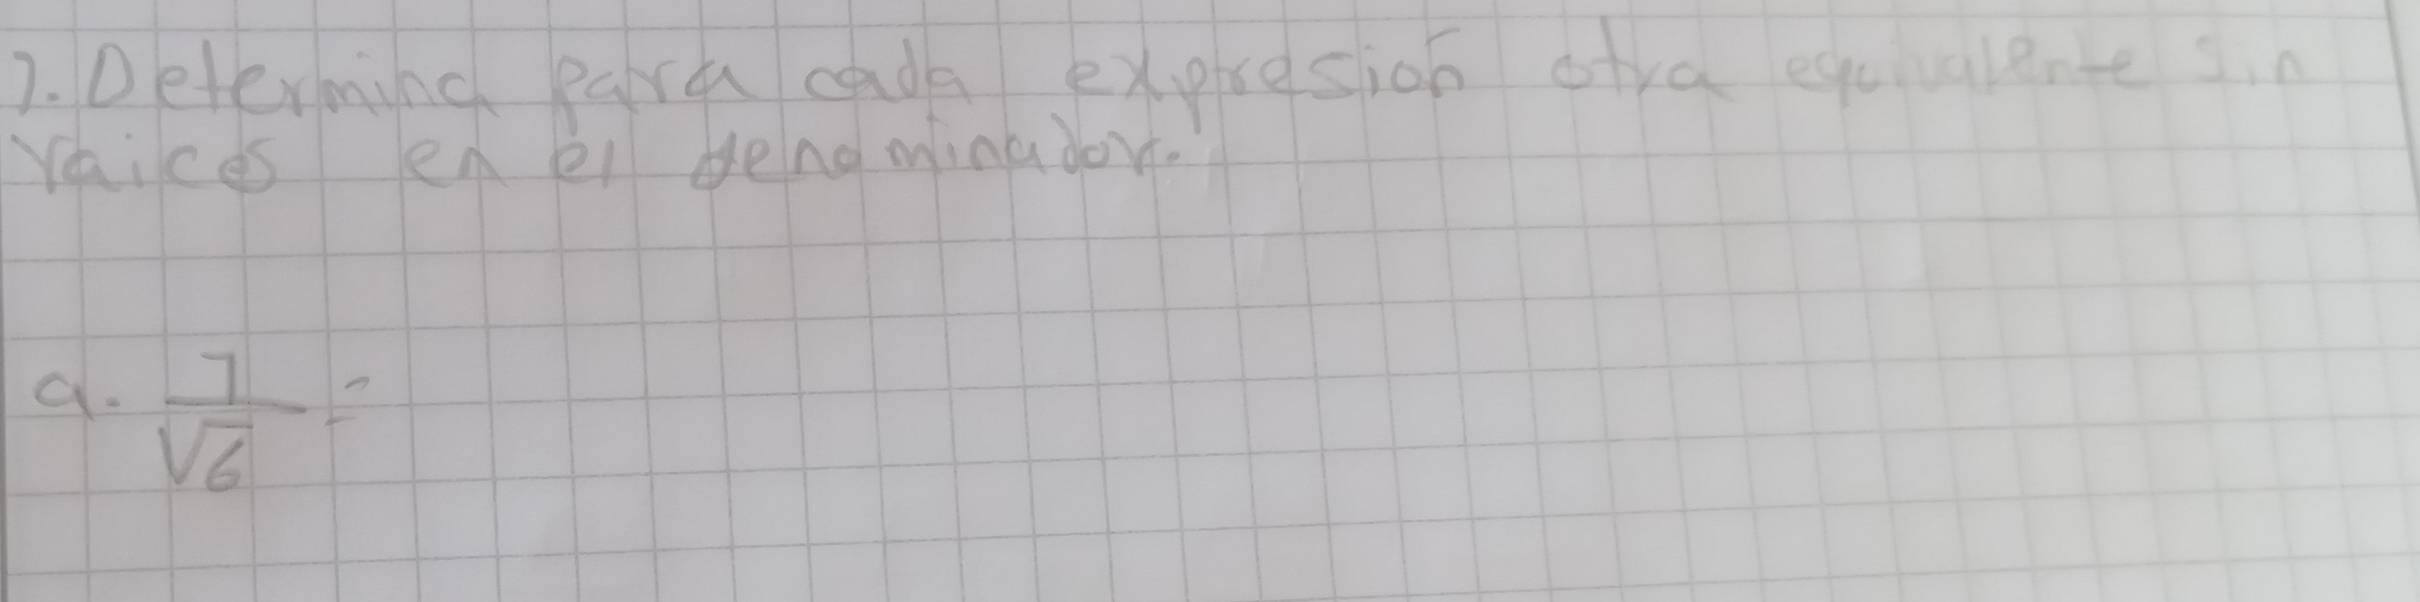 1. Determina para cada expresión otra equivalente sin
raices en el denominador.
a. 1/√6 =